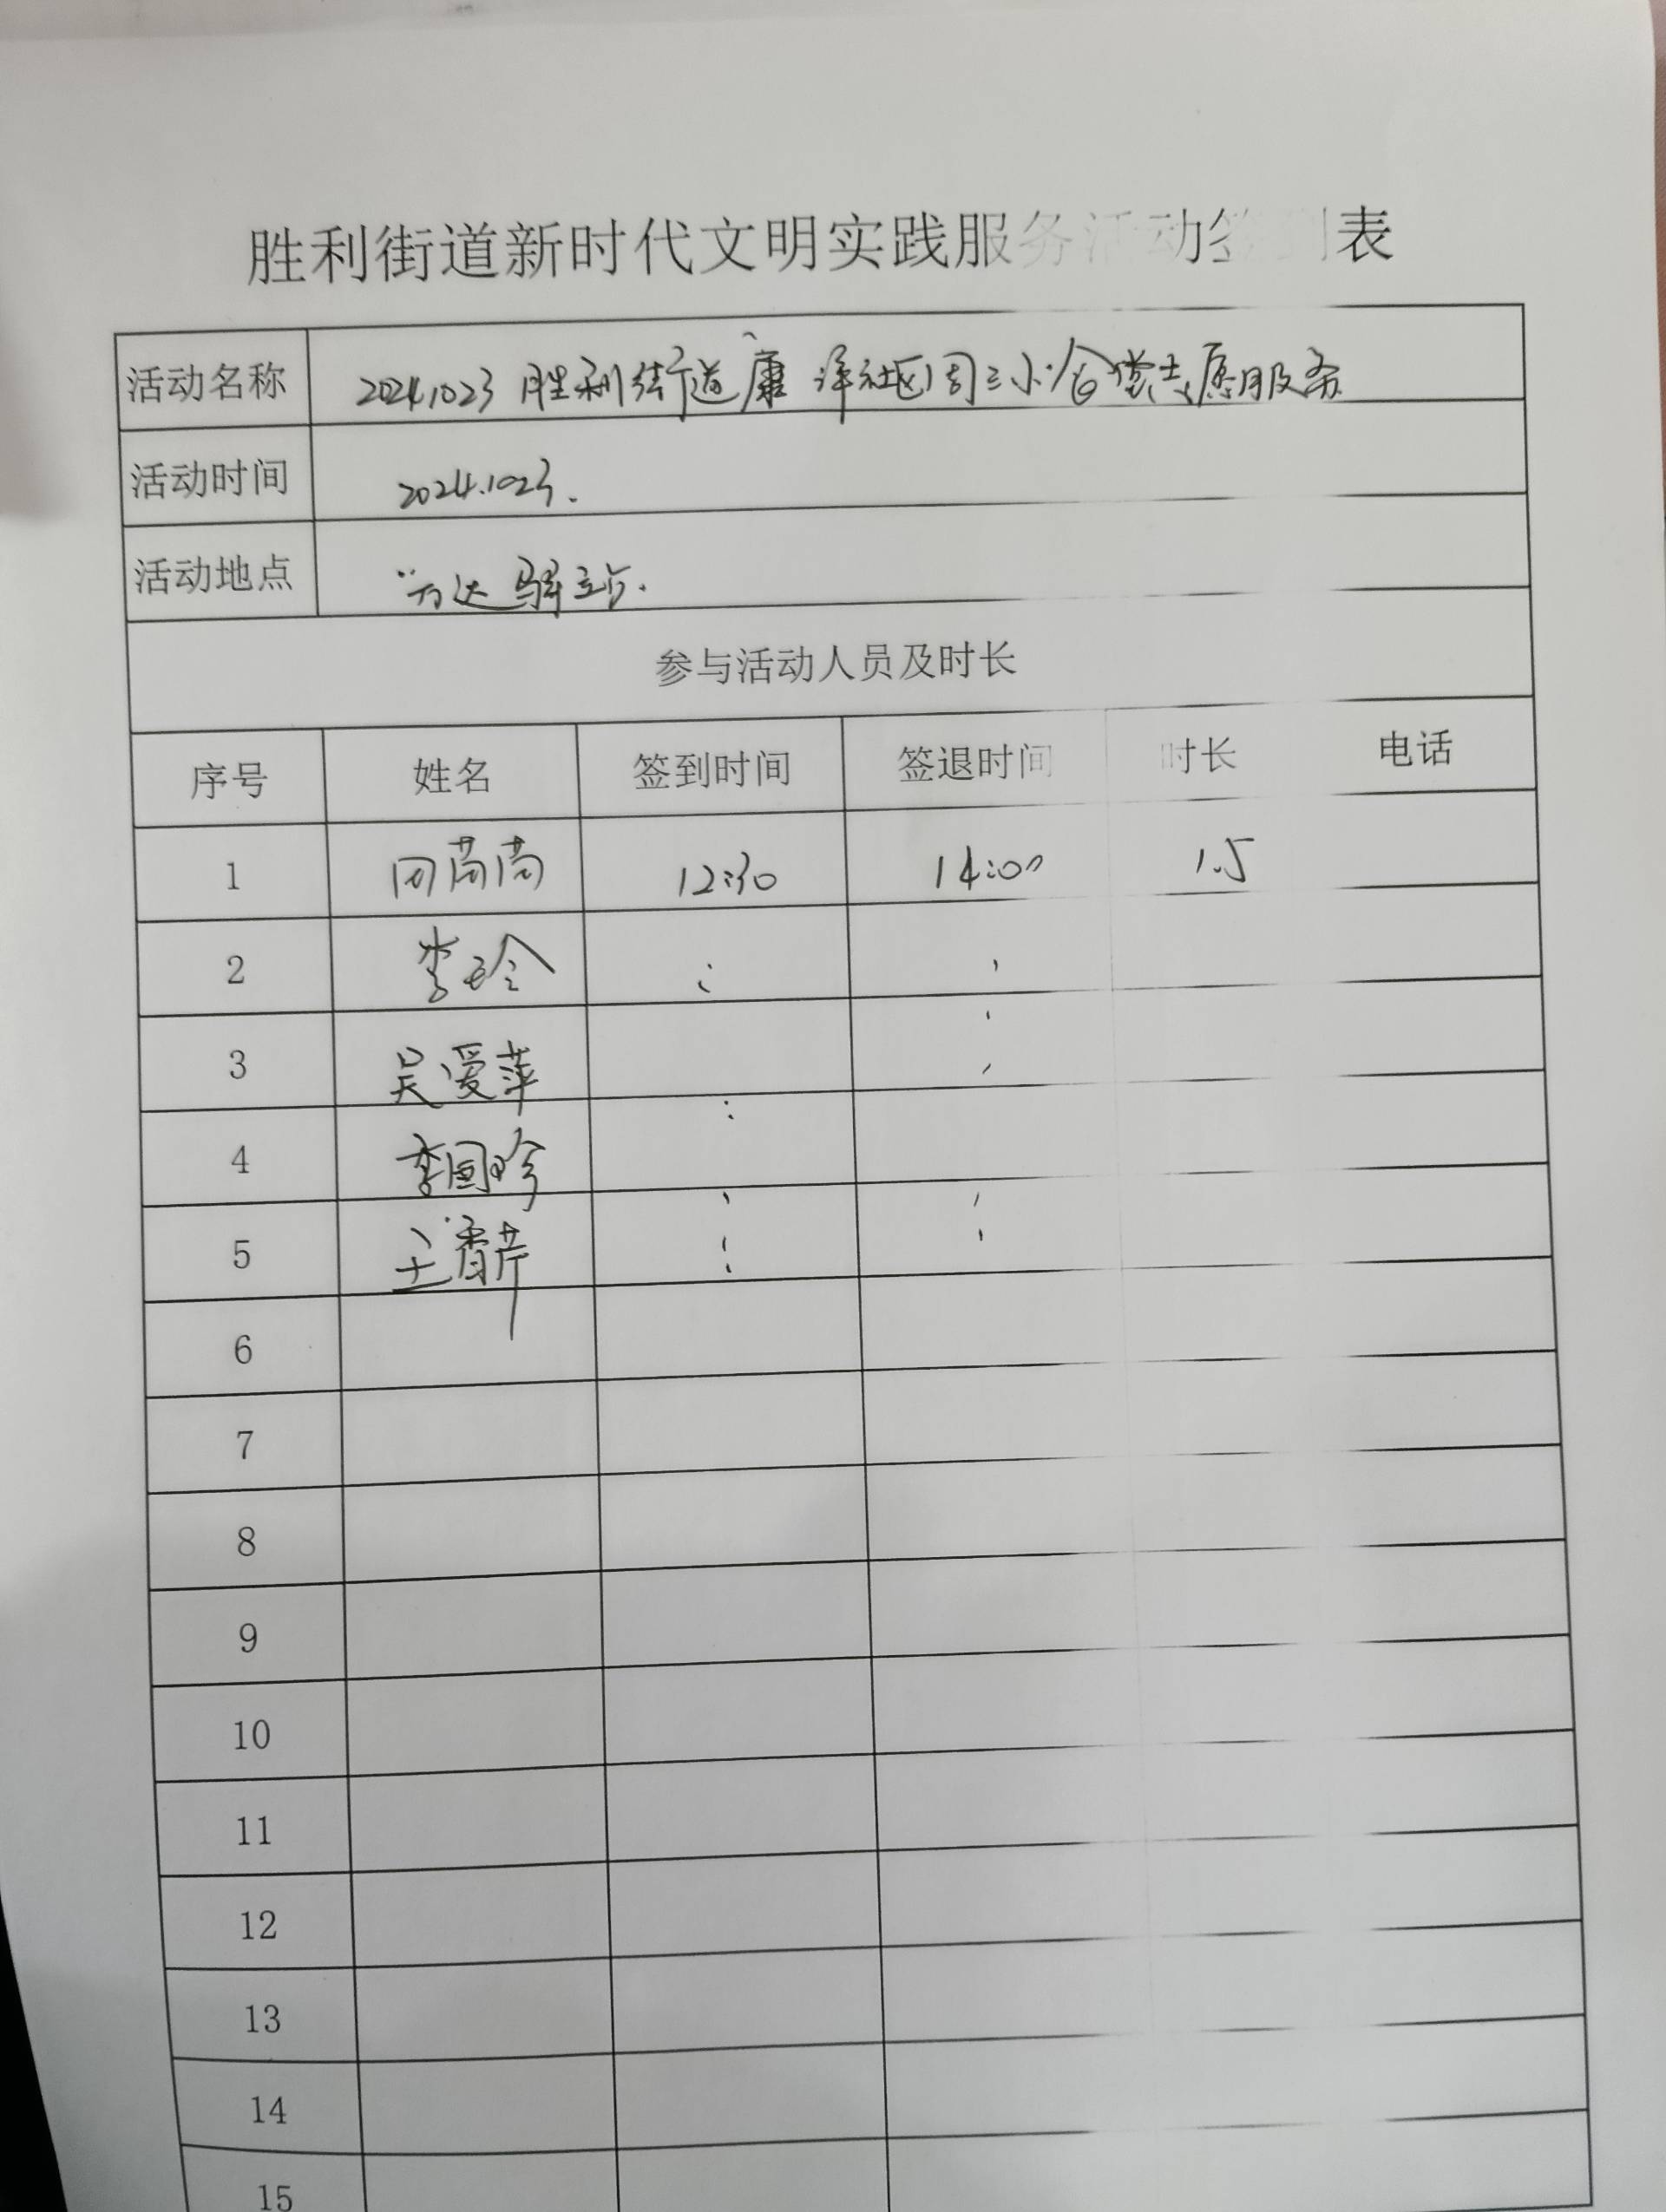 胜利街道新时代文明实践服务活动签到表
活动名称 20241023 胜利街道康洋社区周三小食堂志愿服务
活动时间 2024.1023.
活动地点 万达驿站.
参与活动人员及时长
序号 姓名 签到时间 签退时间 时长 电话
1 12:30 14:00 1.5
2 李玲
3 吴爱萍
4 李国珍
5 王香芹
6
7
8
9
10
11
12
13
14
15